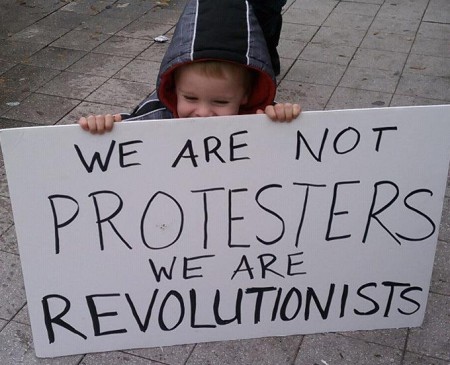 WE ARE NOT
PROTESTERS
WE ARE
REVOLUTIONISTS